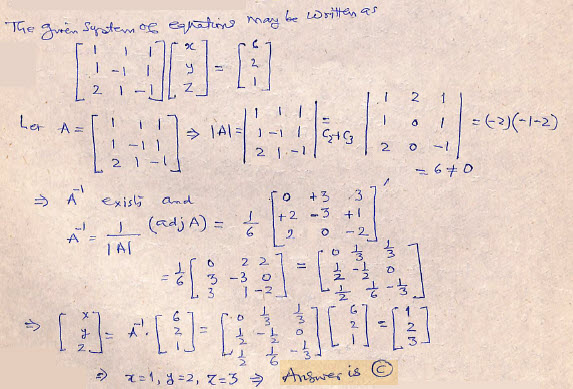 The given System of equations may be written as
[1 1 1; 1 -1 1; 2 1 -1] [x; y; z] = [6; 2; 1]
Let A = [1 1 1; 1 -1 1; 2 1 -1] ⇒ |A| = |1 1 1; 1 -1 1; 2 1 -1| = C₂+C₃ |1 2 1; 1 0 1; 2 0 -1| = (-2)(-1-2)
= 6 ≠ 0
⇒ A⁻¹ exists and
A⁻¹ = 1/|A| (adj A) = 1/6 [0 +3 3; +2 -3 +1; 2 0 -2]'
= 1/6 [0 2 2; 3 -3 0; 3 1 -2] = [0 1/3 1/3; 1/2 -1/2 0; 1/2 1/6 -1/3]
⇒ [x; y; z] = A⁻¹. [6; 2; 1] = [0 1/3 1/3; 1/2 -1/2 0; 1/2 1/6 -1/3] [6; 2; 1] = [1; 2; 3]
⇒ x=1, y=2, z=3 ⇒ Answer is Ⓒ